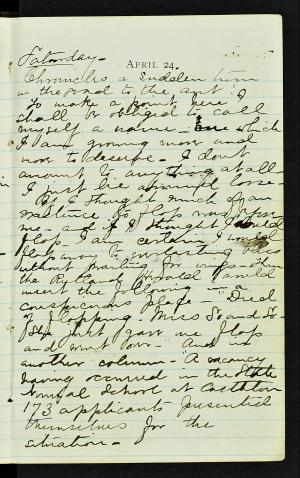 APRIL 24.
Saturday—
Chronicles a sudden turn
in the road to the ant!
To make a point here I
shall be obliged to call
myself a name which
I am growing more and
more to deserve— I dont
amount to anything at all—
I just lie around loose—
If I thought much of an
existence to flop was before
me— and if I thought I would
flop I am certain I would
flop away to everlasting bliss
without waiting for wings— the
the Rutland Herald would
insert the following — in a
conspicuous place— Died
of flopping— Miss So and So—
She just gave one flop
and went over— And in
another column— A vacancy
having occurred in the State
Normal School at Castleton
173 applicants presented
themselves for the
situation—